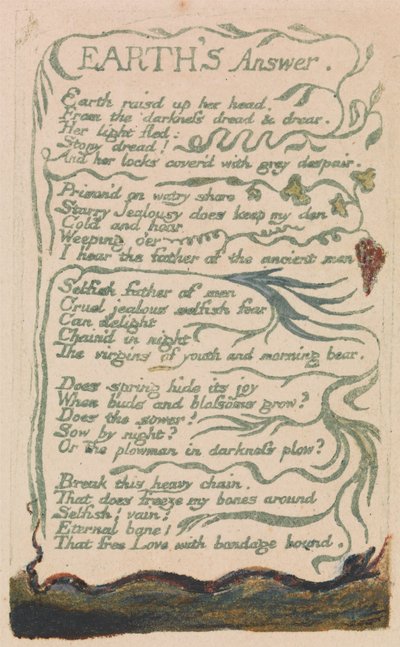 EARTH'S Answer.
Earth raisd up her head,
From the darkness dread & drear.
Her light fled:
Stony dread!
And her locks cover'd with grey despair.
Prison'd on watry shore
Starry Jealousy does keep my den
Cold and hoar
Weeping o'er
I hear the father of the ancient men
Selfish father of men
Cruel jealous selfish fear
Can delight
Chain'd in night
The virgins of youth and morning bear.
Does spring hide its joy
When buds and blossoms grow?
Does the sower?
Sow by night?
Or the plowman in darkness plow?
Break this heavy chain.
That does freeze my bones around
Selfish! vain!
Eternal bane!
That free Love with bondage bound.